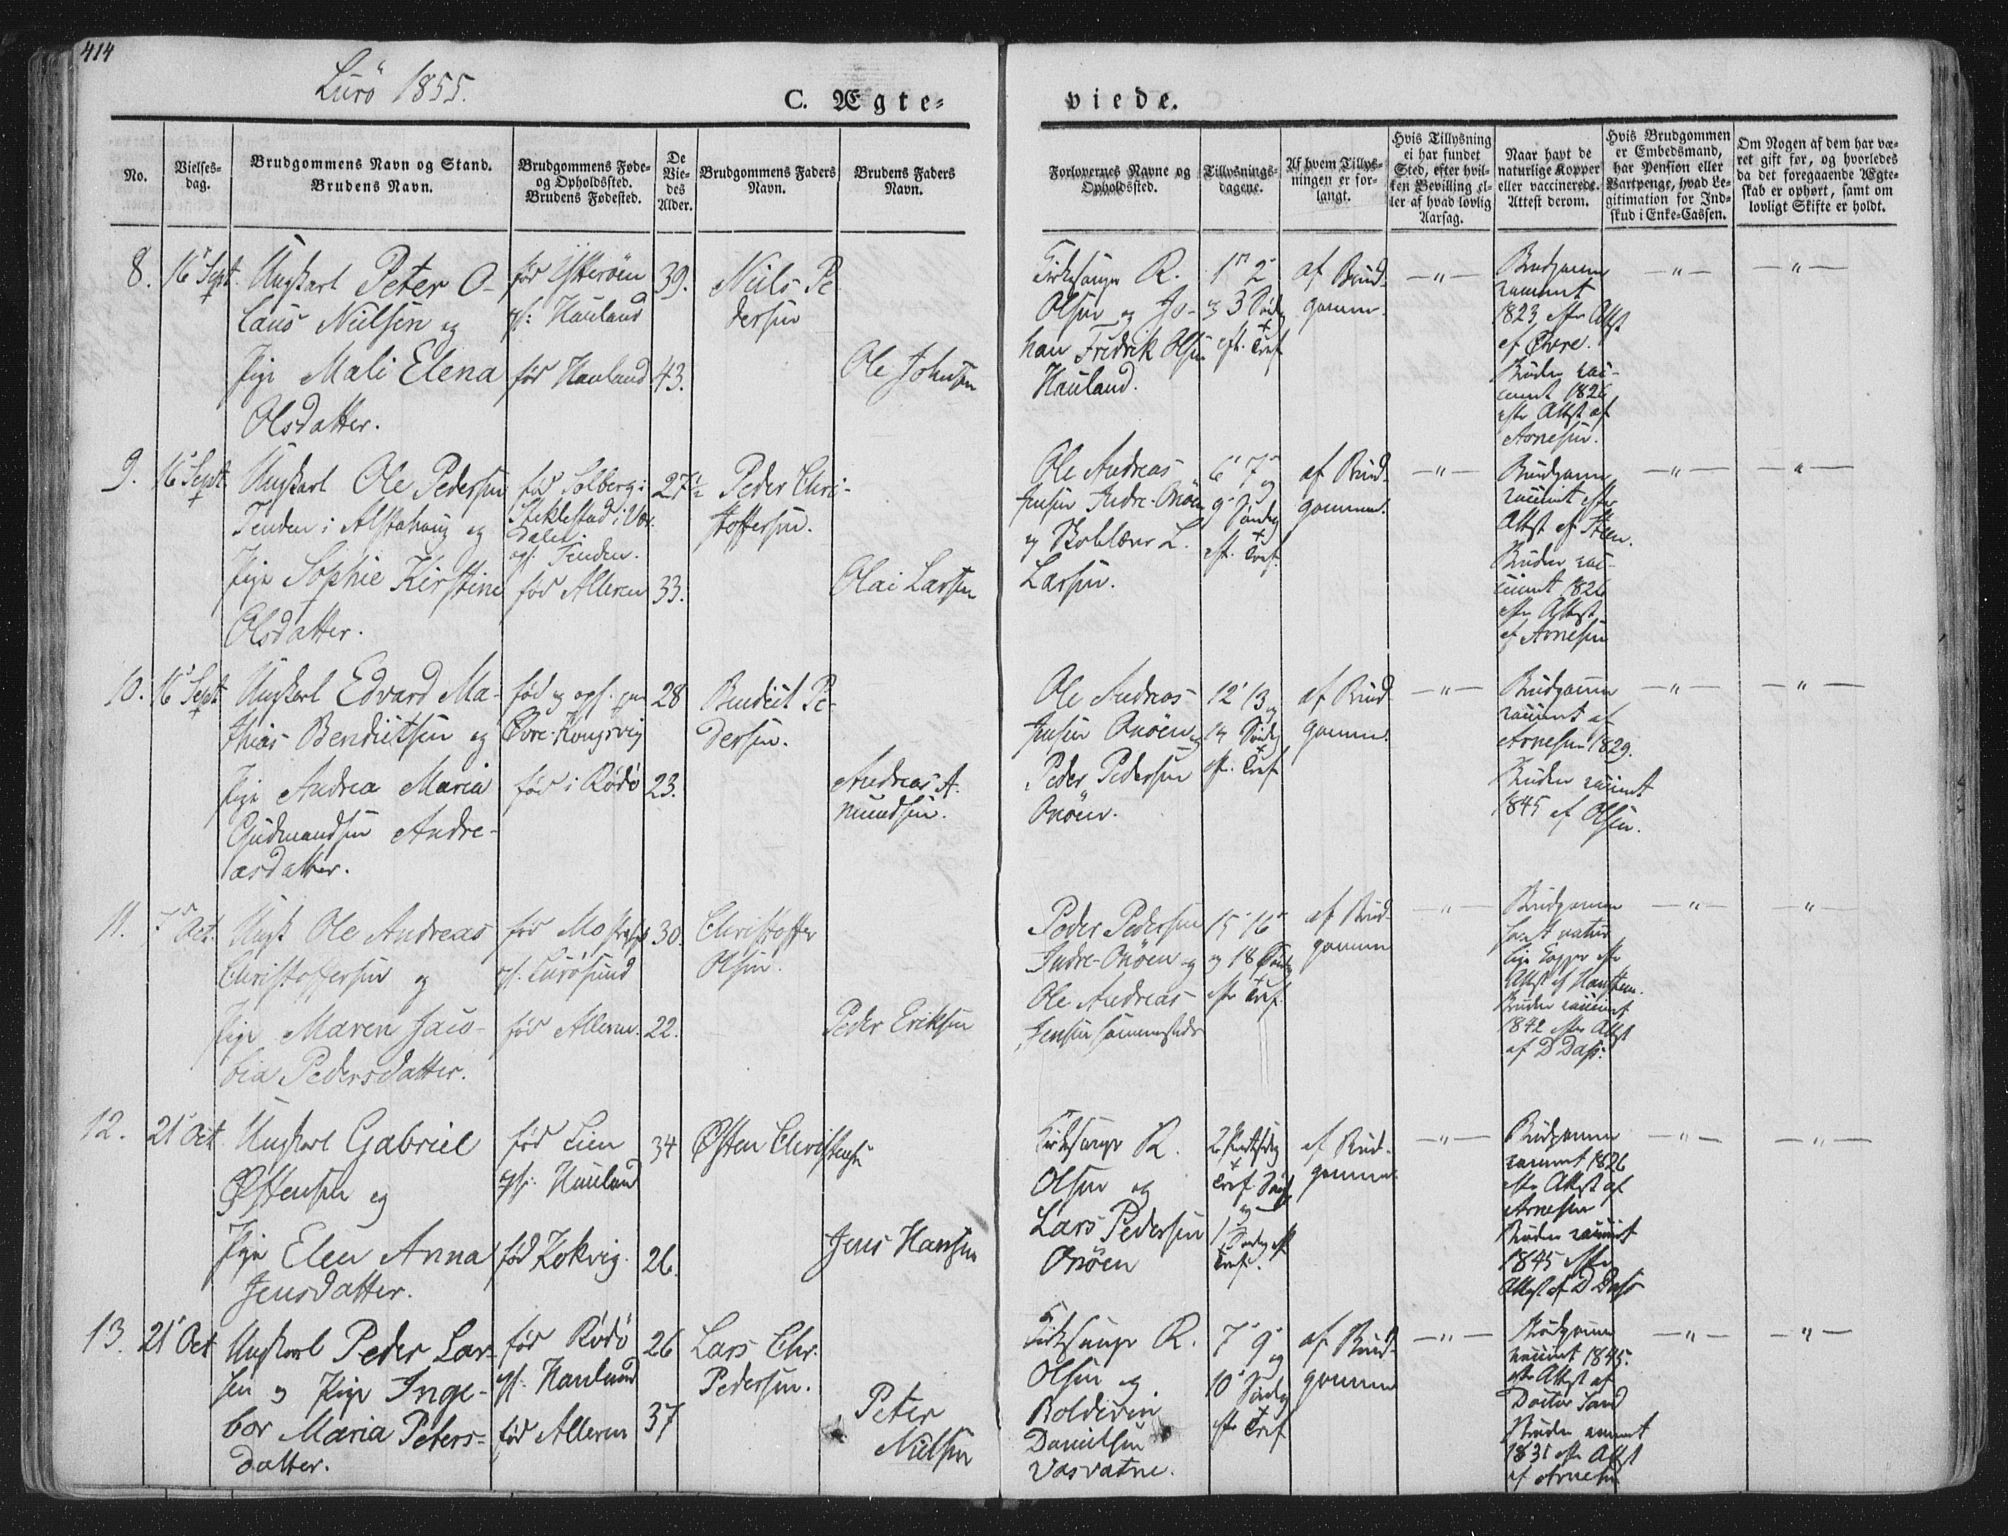 414
Lurö 1855.
C. Ægte-
viede.
No.
Vielses-
dag.
Brudgommens Navn og Stand.
Brudens Navn.
Brudgommens Føde-
og Opholdssted.
Brudens Fødested.
De
Vie-
des
Alder.
Brudgommens Faders
Navn.
Brudens Faders
Navn.
Forlovernes Navne og
Opholdssted.
Tillysnings-
dagene.
Af hvem Tillys-
ningen er for-
langt.
Hvis Tillysning
ei har fundet
Sted, efter hvil-
ken Bevilling el-
ler af hvad lovlig
Aarsag.
Naar havt de
naturlige Kopper
eller vaccinerede.
Attest derom.
Hvis Brudgommen
er Embedsmand,
har Pension eller
Vartpenge, hvad Le-
gitimation for Ind-
skud i Enke-Cassen.
Om Nogen af dem har væ-
ret gift før, og hvorledes
da det foregaaende Ægte-
skab er ophørt, samt om
lovligt Skifte er holdt.
8. 16 Sept
Ungkarl Peter O-
laus Nielsen og
Pige Mali Elena
Olsdatter.
ops: Hauland
fød Hauland
39.
43.
Niels Pe
dersen
Ole Johnsen
Kirkesanger R.
Olsen og Jo-
han Fredrik Olsen
Hauland.
1 2
og 3 Søndag
eft. Tref
af Brud-
gommen.
— " —
Brudgommen
vaccineret
1823, efter Attest
af Øvre.
Bruden vac-
cineret 1826
efter Attest af
Arnesen.
— " —
— " —
9. 16 Sept
Ungkarl Ole Pedersen
Tenden i Alstahoug og
Pige Sophie Kirstine
Olsdatter.
fød Solberg i
Stiklestad i Vær-
dalen
ops. Tenden.
fød Alleren
27 1/2
33.
Peder Chri-
stoffersen.
Olai Larsen
Ole Andreas
Jensen Indre-Onøen
og Skolelærer L.
Larsen.
6 7 og
9 Søndag
eft. Tref.
af Brud-
gommen.
— " —
Brudgommen
vaccineret efter
Attest af Steen.
Bruden vac-
cineret 1826
efter Attest
af Arnesen
— " —
— " —
10. 16 Sept
Ungkarl Edvard Ma-
thias Bendictsen og
Pige Andrea Maria
Gudmandsen Andre-
asdatter.
fød og ops. paa
Øvre-Kongsvig
fød i Rødö
28
23.
Bendict Pe-
dersen.
Andreas A-
mundsen.
Ole Andreas
Jensen Onøen og
Peder Pedersen
Onøen.
12 13 og
14 Søndag
eft. Tref
af Brud
gommen.
— " —
Brudgommen
vaccineret af
Arnesen 1829.
Bruden vaccineret
1845 af Olsen.
— " —
— " —
11. 7 Oct.
Ungk Ole Andreas
Christoffersen og
Pige Maren Jaco-
bia Pedersdatter.
fød Mo
ops. Lurösund
fød Alleren.
30.
22.
Christoffer
Olsen.
Peder Eriksen
Peder Pedersen
Indre-Onøen og
Ole Andreas
Jensen sammesteds
15 16
og 18 Søndag
efter Tref.
af Brud-
gommen
— " —
Brudgommen
havt natur
lige Kopper efter
Attest af Hansteen.
Bruden vaccineret
1842 efter Attest
af D Dass.
— " —
"
12. 21 Oct
Ungkarl Gabriel
Østensen og
Pige Elen Anna
Jensdatter.
fød Lien
ops: Hauland
fød Kokvig.
34
26.
Østen Christensen
Jens Hansen
Kirkesanger R.
Olsen og
Lars Pedersen
Onøen
Tref Sønd
og
Tref.
af Brud-
gommen.
— " —
Brudgommen
vaccineret 1826
efter Attest af
Arnesen
Bruden vaccineret
1845 efter
Attest af D Dass
— " —
— " —
13. 21 Oct
Ungkarl Peder Lar-
sen og Pige Inge-
bor Maria Peters-
datter.
fød Rödö
ops. Hauland
fød Alleren
26
37
Lars Chr.
Pedersen.
Peter
Nielsen
Kirkesanger R.
Olsen og
Boldevin
Danielsen
Vasvatne.
7 9 og
10 Søndag
efter Tref
af Brud-
gommen
— " —
Brudgommen
vaccineret 1845.
efter Attest af
Doctor Sand
Bruden vaccineret
1831 efter Attest
af Arnesen
— " —
— " —